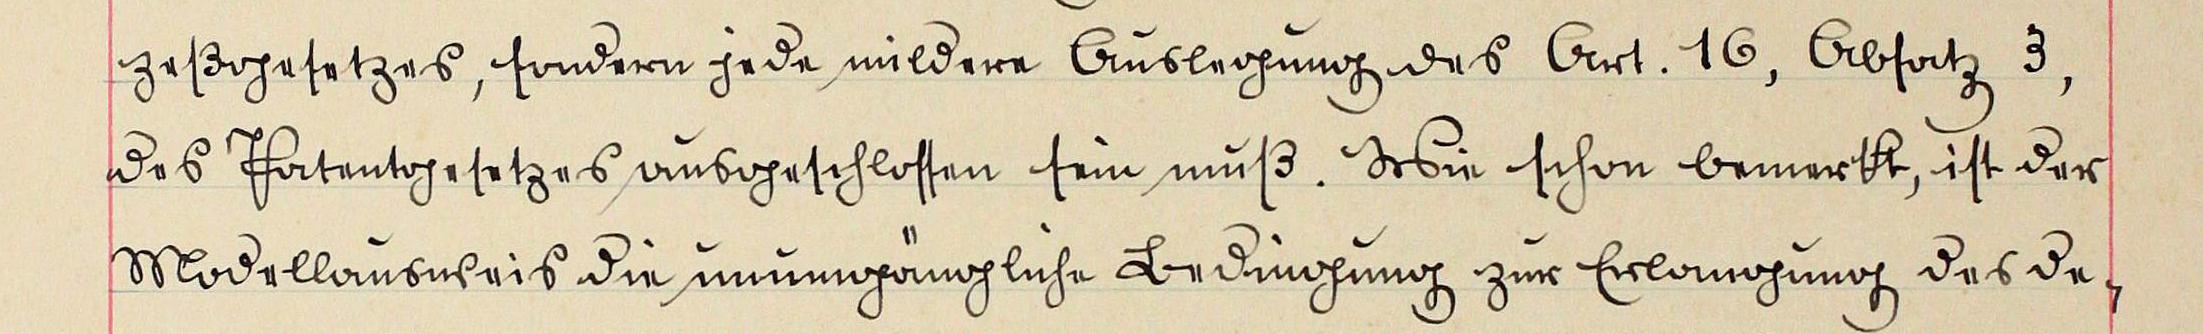 zeßgesetzes, sondern jede mildere Auslegung des Art. 16, Absatz 3,
des Patentgesetzes ausgeschlossen sein muß. Wie schon bemerkt, ist der
Modellausweis die unumgängliche Bedingung zur Erlangung des de-